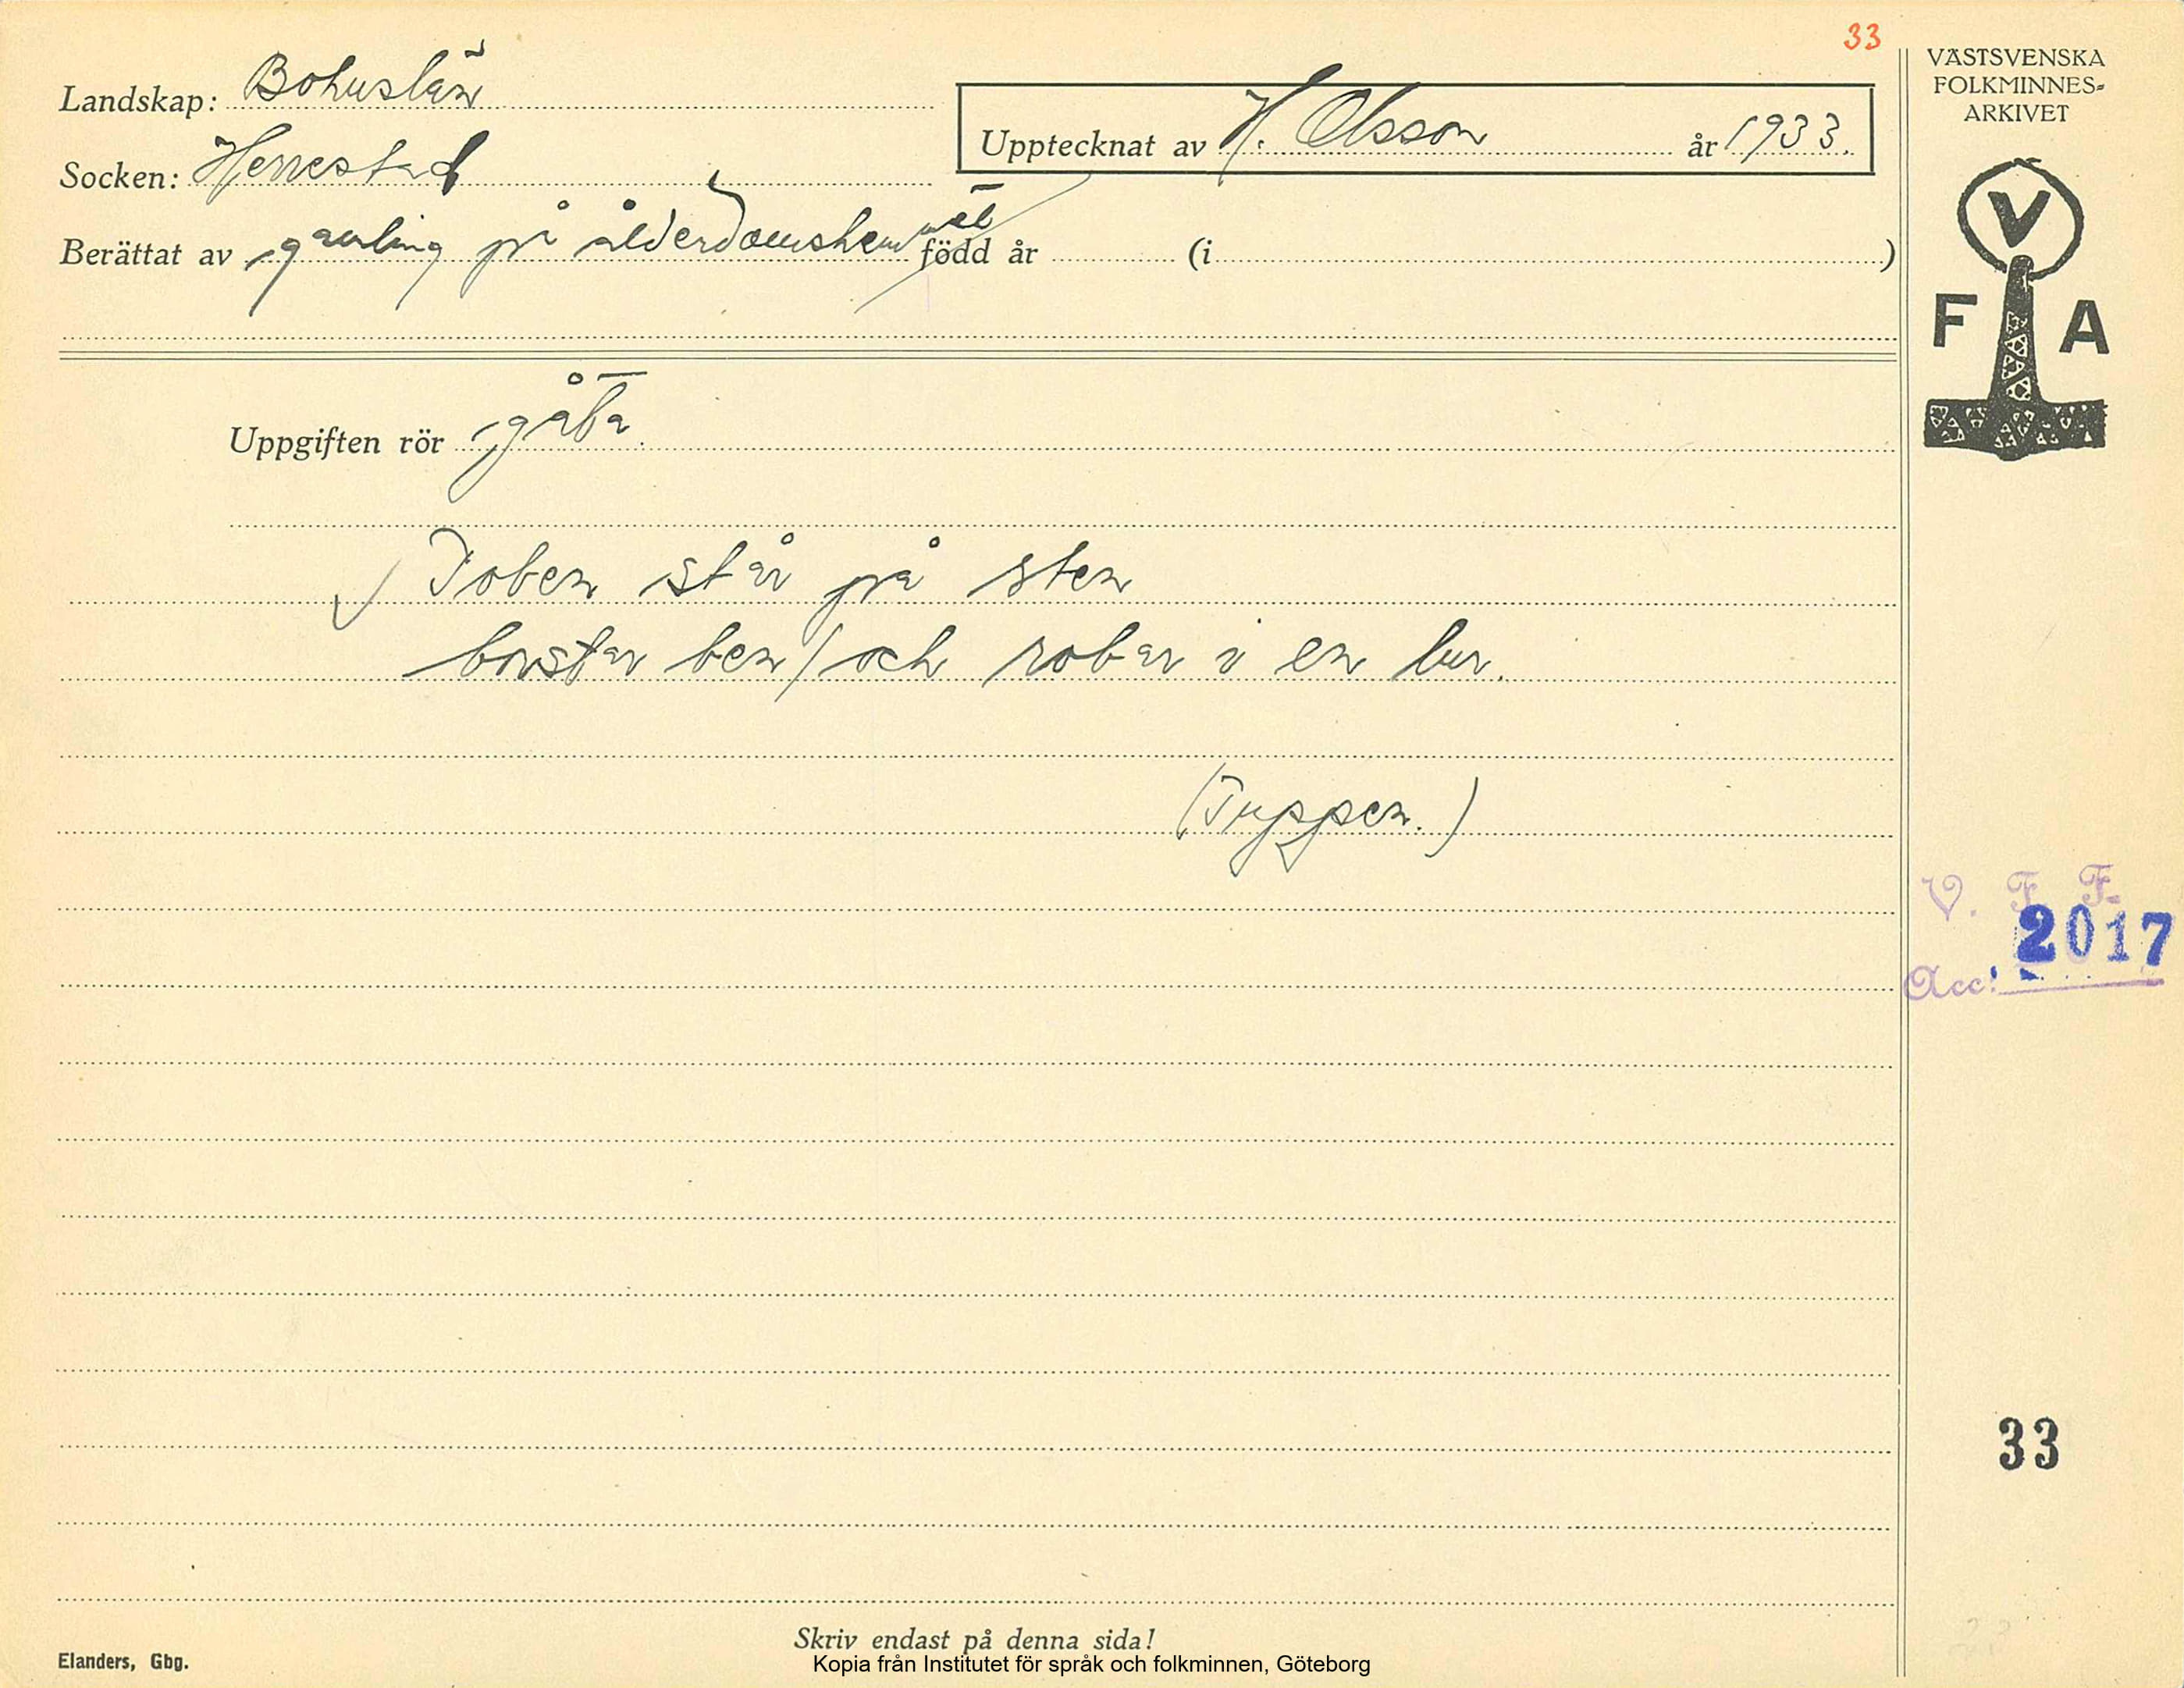 33
Landskap: Bohuslän
Upptecknat av H. Olsson år 1933.
Socken: Herrestad
Berättat av gamling på ålderdomshemmet född år (i )
Uppgiften rör gåta
Toben står på sten
borstar ben / och robar i en lur.
(Tuppen.)
VÄSTSVENSKA
FOLKMINNES-
ARKIVET
V
F A
V. F. F.
2017
Acc:
33
Skriv endast på denna sida!
Elanders, Gbg.
Kopia från Institutet för språk och folkminnen, Göteborg